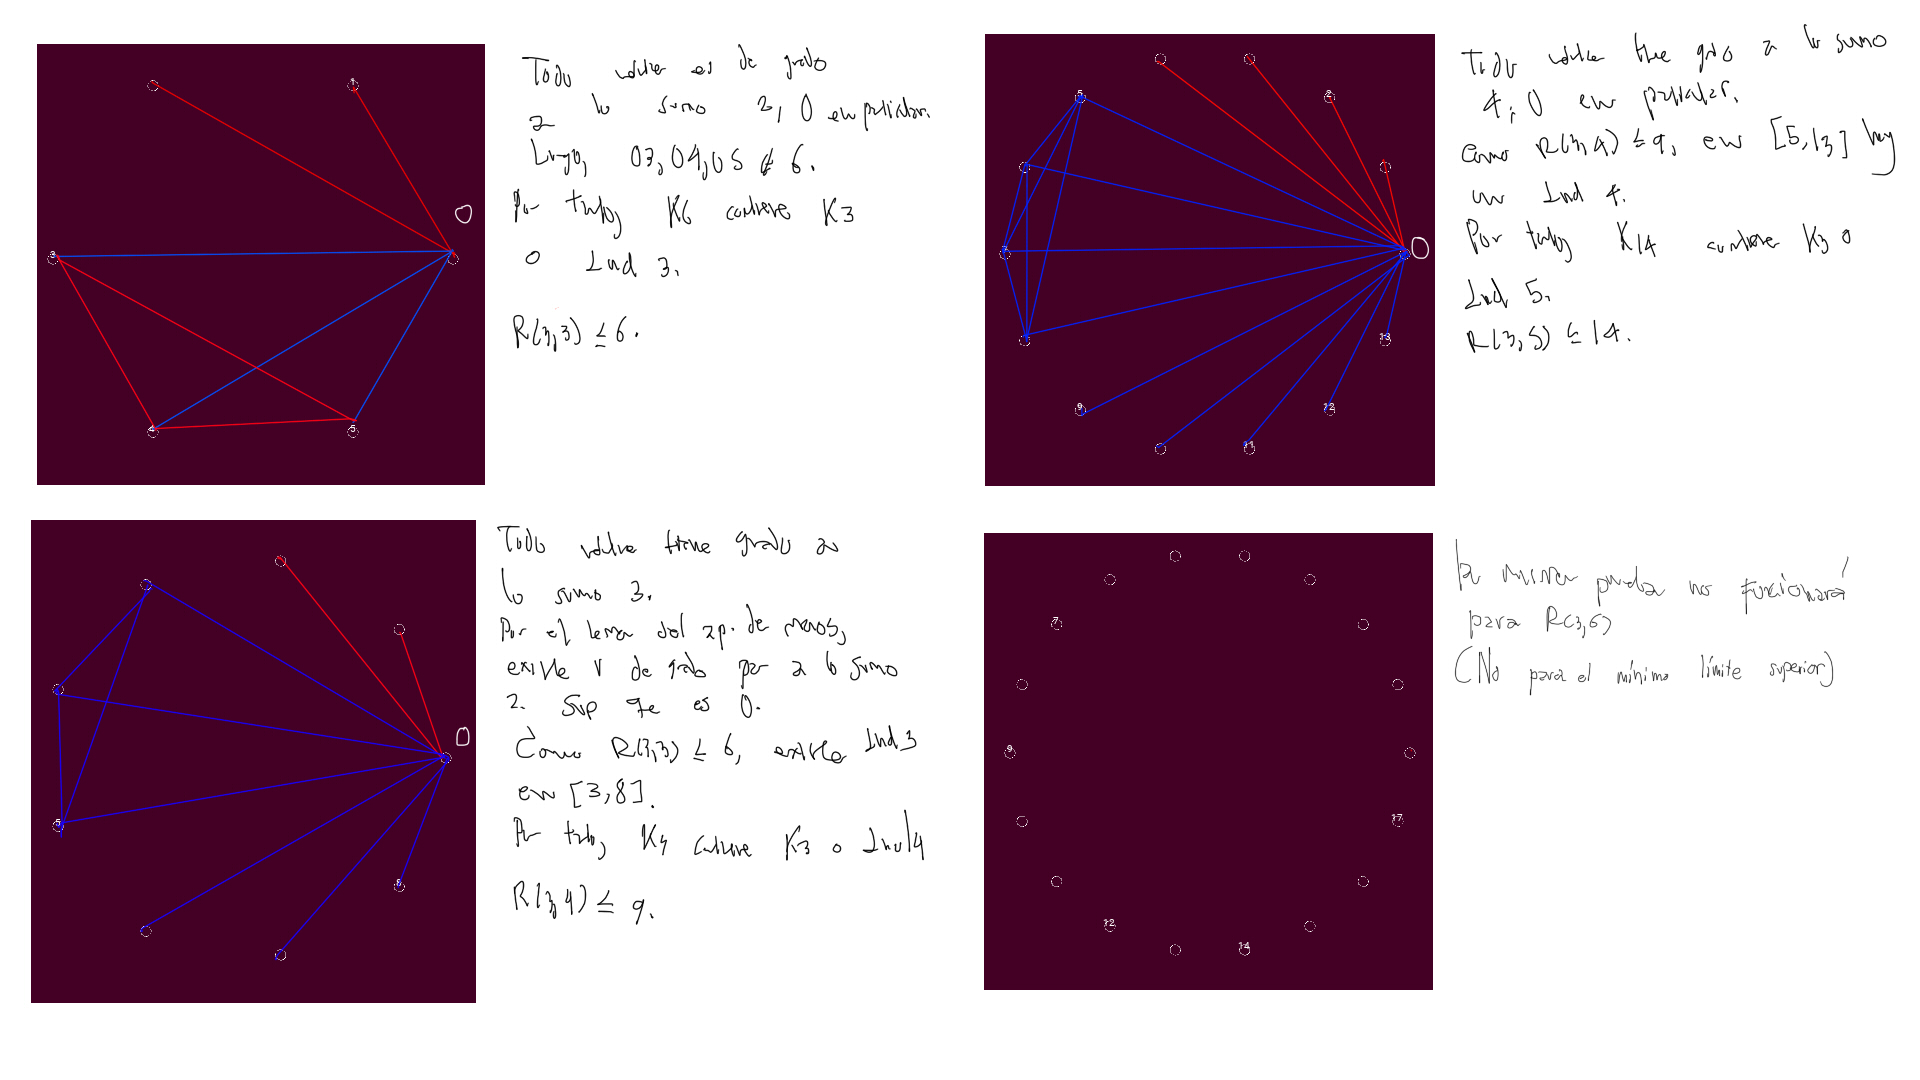 Todo vértice es de grado
a lo sumo 2, 0 en particular.
Luego, 03, 04, 05 ∉ G.
Por tanto, K6 contiene K3
o Ind 3.
R(3,3) ≤ 6.
0
1
3
4
5
Todo vértice tiene grado a lo sumo
4, 0 en particular.
Como R(3,4) ≤ 9, en [5,13] hay
un Ind 4.
Por tanto, K14 contiene K3 o
Ind 5.
R(3,5) ≤ 14.
0
2
5
7
9
11
12
13
Todo vértice tiene grado a
lo sumo 3.
Por el lema del ap. de manos,
existe v de grado par a lo sumo
2. Sup qe es 0.
Como R(3,3) ≤ 6, existe Ind 3
en [3,8].
Por tanto, K9 contiene K3 o Ind 4
R(3,4) ≤ 9.
0
5
8
La misma prueba no funcionará
para R(3,6)
(No para el mínimo límite superior)
7
9
12
14
17